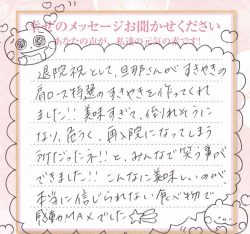 幸せのメッセージお聞かせください
あなたの声が、私達の元気の素です!
退院祝として、旦那さんがすきやきの
肩ロース特選のすきやきを作ってくれ
ました!!美味すぎて、倒れそうに
なり、危うく、再入院になってしまう
所だったネ!!と、みんなで笑う事が
できました!!こんなに美味しいのが
本当に信じられない食べ物で
感動MAXでした☆